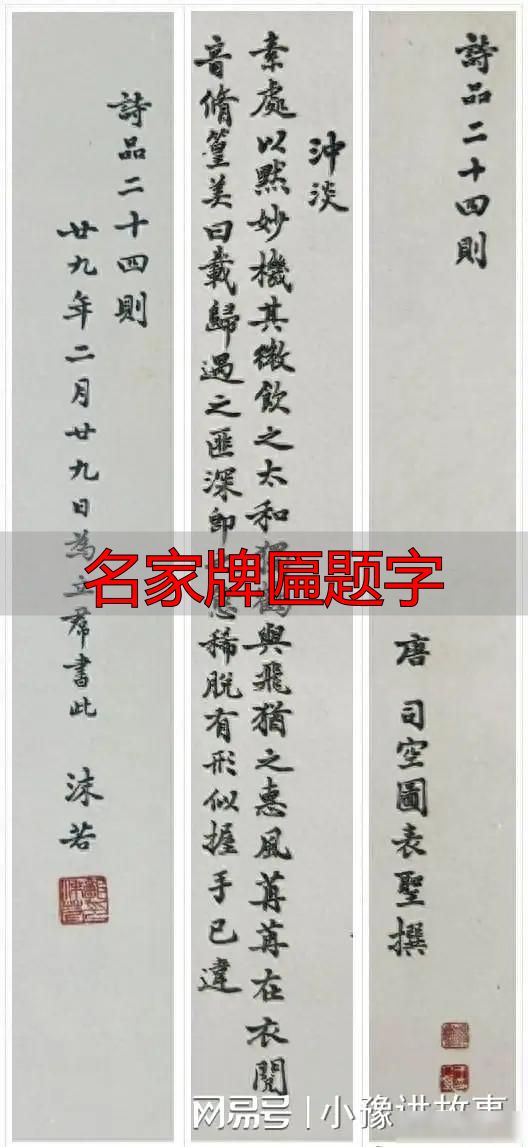 詩品二十四則
唐 司空圖表聖撰
沖淡
素處以默妙機其微飲之太和與飛猶之惠風苒苒在衣閱
音脩篁美曰載歸遇之匪深即稀脫有形似握手已違
詩品二十四則
廿九年二月廿九日為立羣書此 沫若
名家牌匾题字
网易号 | 小豫讲故事